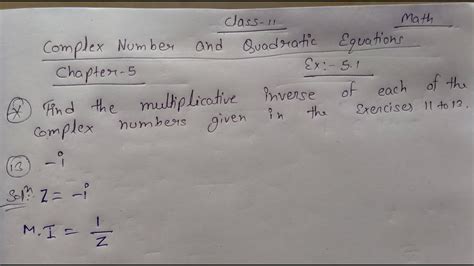 Class-11 Math
Complex Number and Quadratic Equations
Chapter-5 Ex:- 5.1
Q Find the multiplicative inverse of each of the
complex numbers given in the Exercises 11 to 13.
13 -i
Solⁿ: Z = -i
M.I = 1/Z